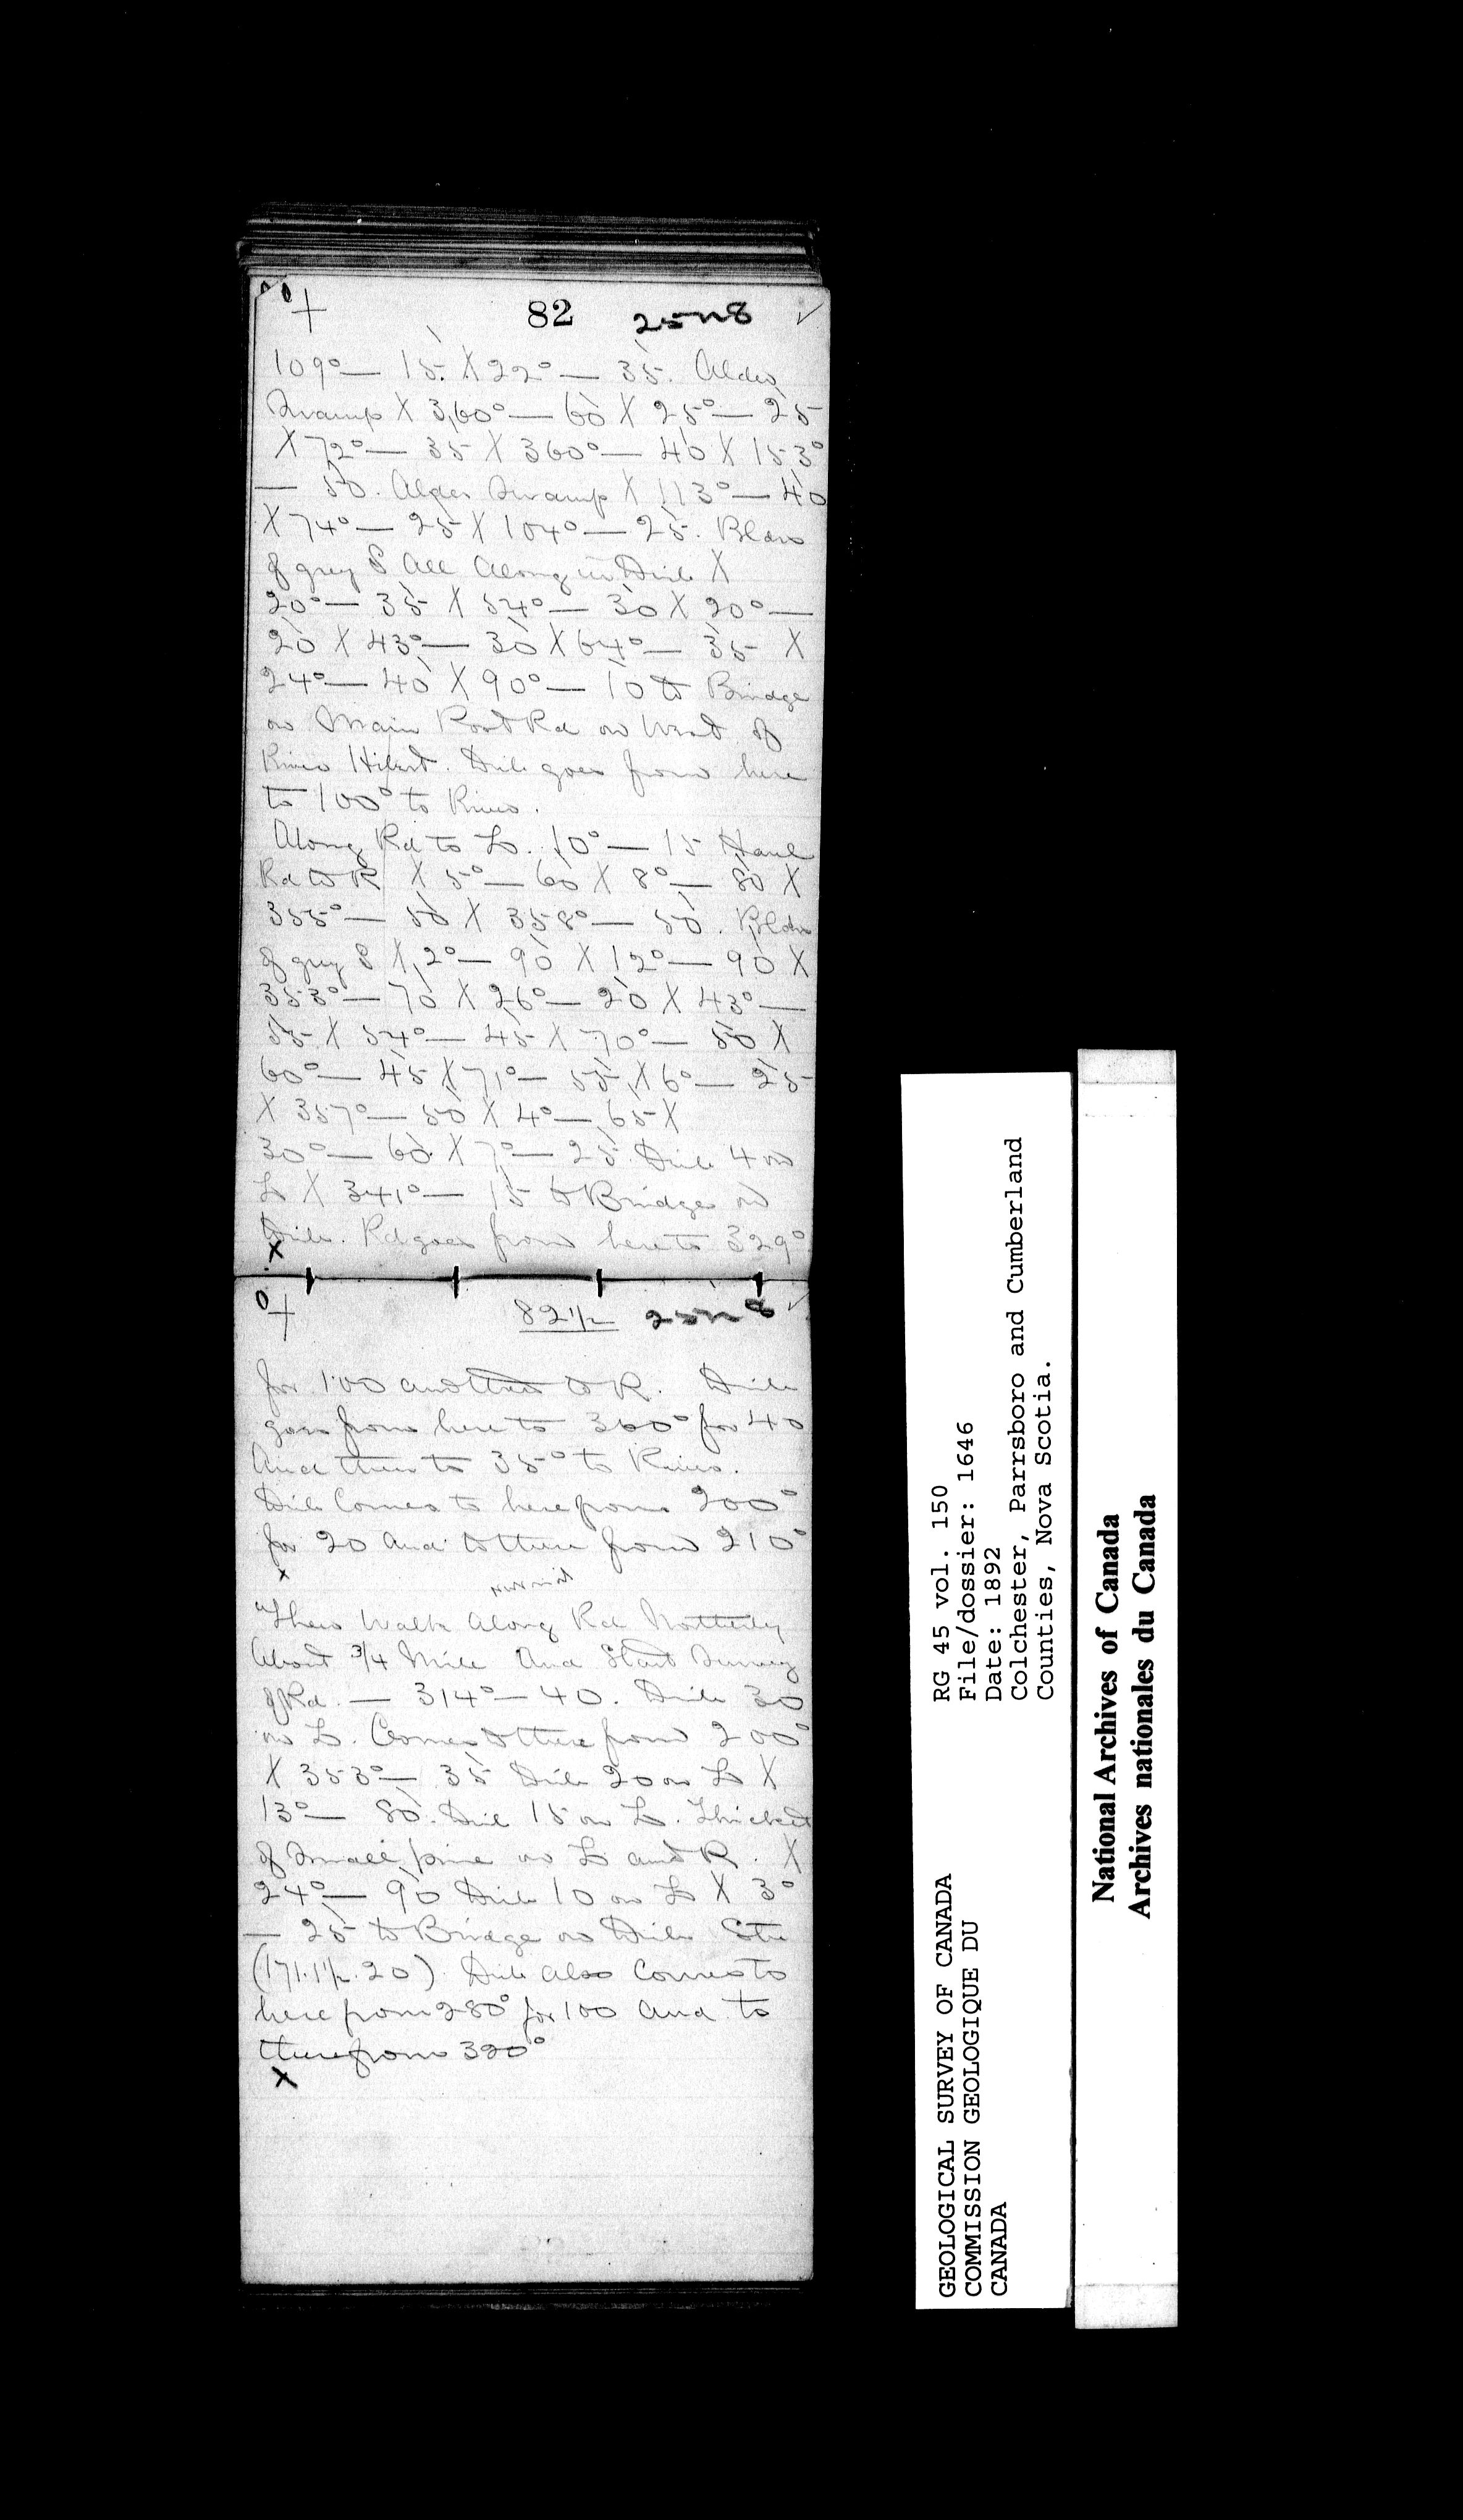 82 25 N 8
109° — 15. X 22° — 35. Alder
Swamp X 360° — 60 X 25° — 25
X 72° — 35 X 360° — 40 X 153°
— 50. Alder Swamp X 113° — 40
X 74° — 25 X 104° — 25. Bldrs
of grey S All Along in X
20° — 35 X 54° — 30 X 20° —
20 X 43° — 30 X 64° — 35 X
24° — 40 X 90° — 10 to Bridge
on Main Post Rd on West of
River Hibert. goes from here
to 100° to River.
Along Rd to L. 10° — 15 Haul
Rd to R X 5° — 60 X 8° — 80 X
355° — 50 X 358° — 50. Bldrs
of grey S X 2° — 90 X 12° — 90 X
353° — 70 X 26° — 20 X 43° —
55 X 54° — 45 X 70° — 50 X
60° — 45 X 71° — 55 X 6° — 25
X 357° — 50 X 4° — 65 X
30° — 60 X 7° — 25. 4 on
L X 341° — 15 to Bridge on
Rd goes from here to 329°
X
82 1/2 25 N 8
for 100 and then to R.
goes from here to 360° for 40
And then to 35° to River.
Comes to here from 200°
for 20 And to there from 210°
X
Then Walk Along Rd Northerly
About 3/4 Mile And Start Survey
of Rd. — 314° — 40. 30
on L. Comes to there from 200°
X 353° — 35 20 on L X
13° — 80. 15 on L. Thicket
of Small pine on L and R. X
24° — 90 10 on L X 3°
— 25 to Bridge on
(171.1 1/2.20) Also Comes to
here from 280° for 100 And to
there from 320°
X
RG 45 vol. 150
File/dossier: 1646
Date: 1892
Colchester, Parrsboro and Cumberland
Counties, Nova Scotia.
GEOLOGICAL SURVEY OF CANADA
COMMISSION GEOLOGIQUE DU
CANADA
National Archives of Canada
Archives nationales du Canada